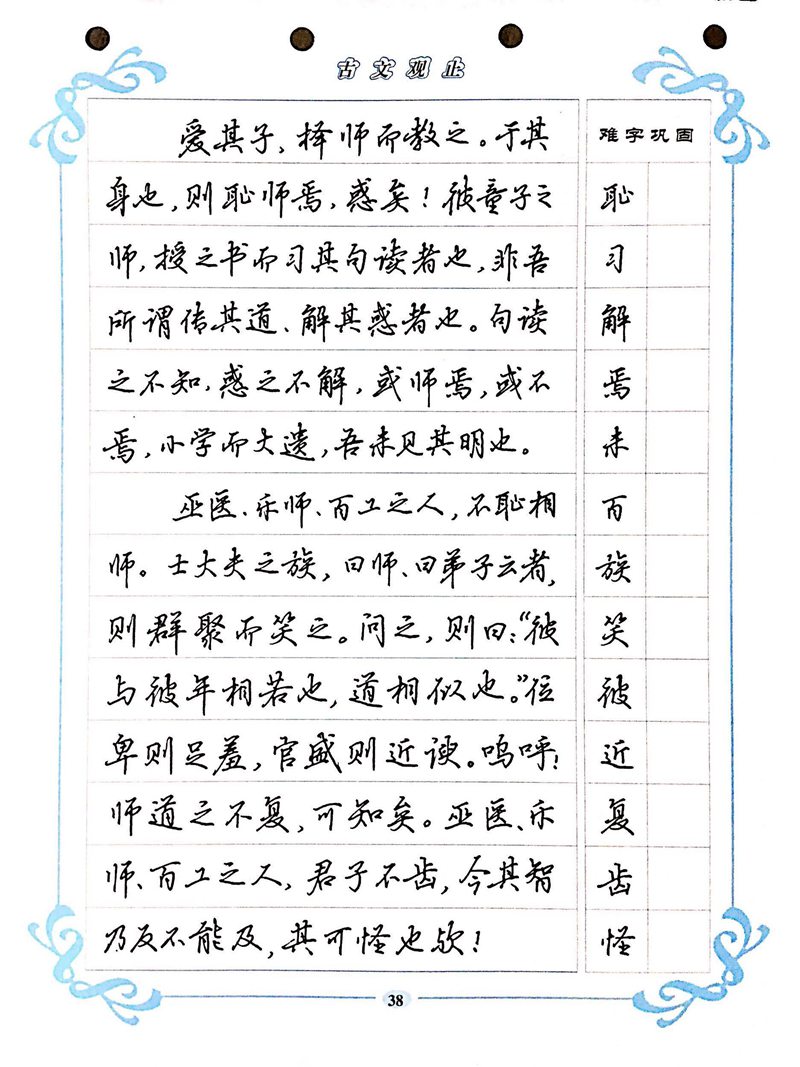 古文观止
爱其子，择师而教之。于其
身也，则耻师焉，惑矣！彼童子之
师，授之书而习其句读者也，非吾
所谓传其道、解其惑者也。句读
之不知，惑之不解，或师焉，或不
焉，小学而大遗，吾未见其明也。
巫医、乐师、百工之人，不耻相
师。士大夫之族，曰师、曰弟子云者，
则群聚而笑之。问之，则曰：“彼
与彼年相若也，道相似也。”位
卑则足羞，官盛则近谀。呜呼！
师道之不复，可知矣。巫医、乐
师、百工之人，君子不齿，今其智
乃反不能及，其可怪也欤！
难字巩固
耻
习
解
焉
未
百
族
笑
彼
近
复
齿
怪
38